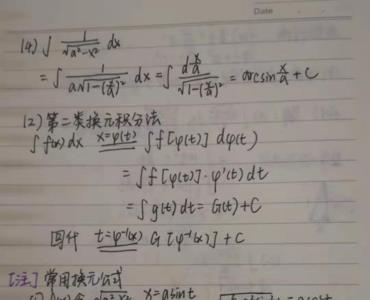 Date
(4) ∫ 1/√(a²-x²) dx
= ∫ 1/(a√(1-(x/a)²)) dx = ∫ d(x/a)/√(1-(x/a)²) = arcsin x/a + C
(2) 第二类换元积分法
∫ f(x) dx x=φ(t) ∫ f[φ(t)] dφ(t)
= ∫ f[φ(t)]·φ'(t) dt
= ∫ g(t) dt = G(t)+C
回代 t=φ⁻¹(x) G[φ⁻¹(x)]+C
[注] 常用换元公式
x=asint